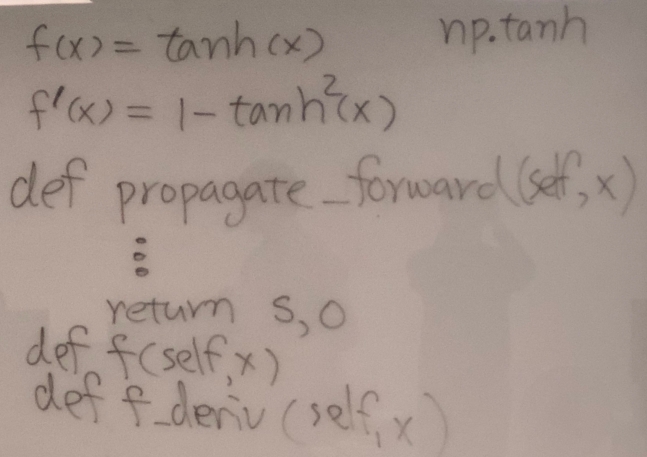 f(x) = tanh(x) np.tanh
f'(x) = 1 - tanh²(x)
def propagate_forward(self, x)
⋮
return s, o
def f(self, x)
def f_deriv(self, x)